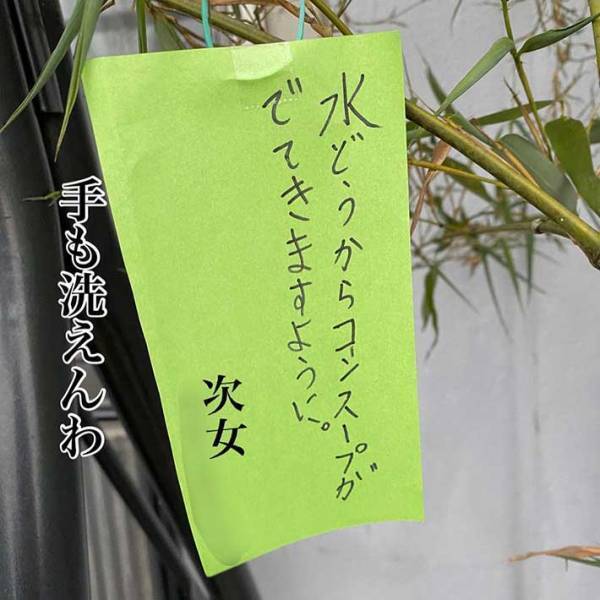 水どうからコーンスープが
でてきますように。
次女
手も洗えんわ